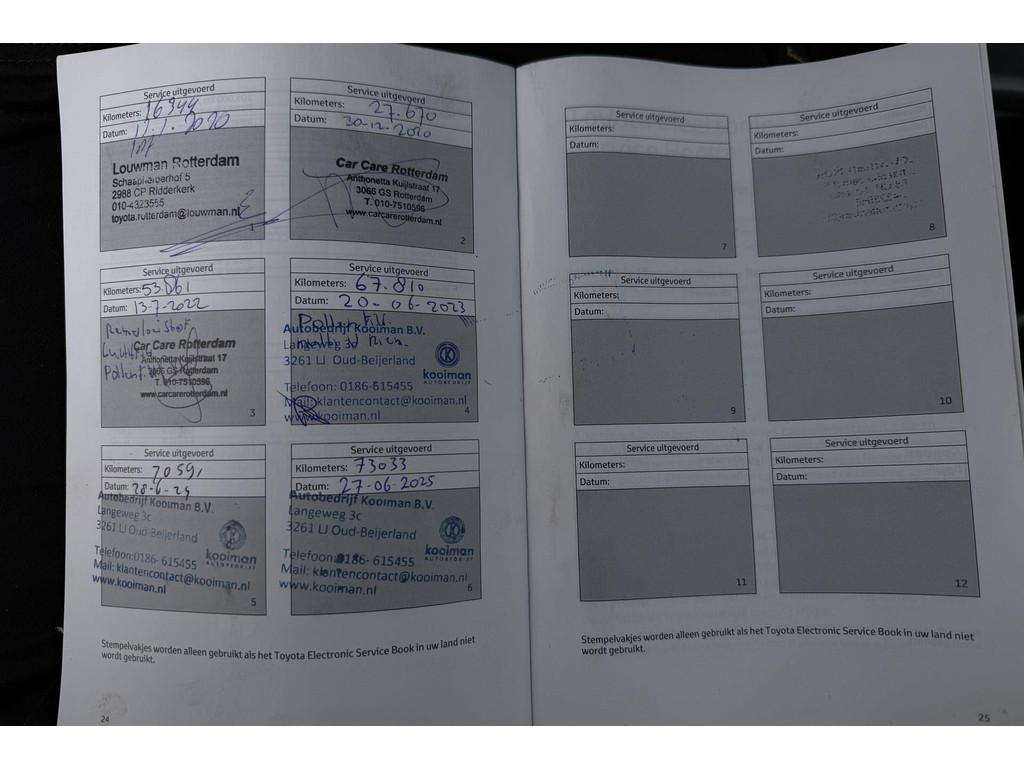 Service uitgevoerd
Kilometers: 16344
Datum: 11.1.2020
Louwman Rotterdam
Schaapherderhof 5
2988 CP Ridderkerk
010-4323555
toyota.rotterdam@louwman.nl
1
Service uitgevoerd
Kilometers: 27.670
Datum: 30-12-2020
Car Care Rotterdam
Anthonetta Kuijlstraat 17
3066 GS Rotterdam
T. 010-7510596
www.carcarerotterdam.nl
2
Service uitgevoerd
Kilometers: 53861
Datum: 13-7-2022
Car Care Rotterdam
Anthonetta Kuijlstraat 17
3066 GS Rotterdam
T. 010-7510596
www.carcarerotterdam.nl
3
Service uitgevoerd
Kilometers: 67.810
Datum: 20-06-2023
Autobedrijf Kooiman B.V.
Langeweg 3c
3261 LJ Oud-Beijerland
kooiman
AUTOBEDRIJF
Telefoon: 0186-615455
Mail: klantencontact@kooiman.nl
www.kooiman.nl
4
Service uitgevoerd
Kilometers: 70591
Datum: 28-6-24
Autobedrijf Kooiman B.V.
Langeweg 3c
3261 LJ Oud-Beijerland
kooiman
AUTOBEDRIJF
Telefoon: 0186- 615455
Mail: klantencontact@kooiman.nl
www.kooiman.nl
5
Service uitgevoerd
Kilometers: 73033
Datum: 27-06-2025
Autobedrijf Kooiman B.V.
Langeweg 3c
3261 LJ Oud-Beijerland
kooiman
AUTOBEDRIJF
Telefoon: 0186- 615455
Mail: klantencontact@kooiman.nl
www.kooiman.nl
6
Stempelvakjes worden alleen gebruikt als het Toyota Electronic Service Book in uw land niet
wordt gebruikt.
24
Service uitgevoerd
Kilometers:
Datum:
7
Service uitgevoerd
Kilometers:
Datum:
8
Service uitgevoerd
Kilometers:
Datum:
9
Service uitgevoerd
Kilometers:
Datum:
10
Service uitgevoerd
Kilometers:
Datum:
11
Service uitgevoerd
Kilometers:
Datum:
12
Stempelvakjes worden alleen gebruikt als het Toyota Electronic Service Book in uw land niet
wordt gebruikt.
25